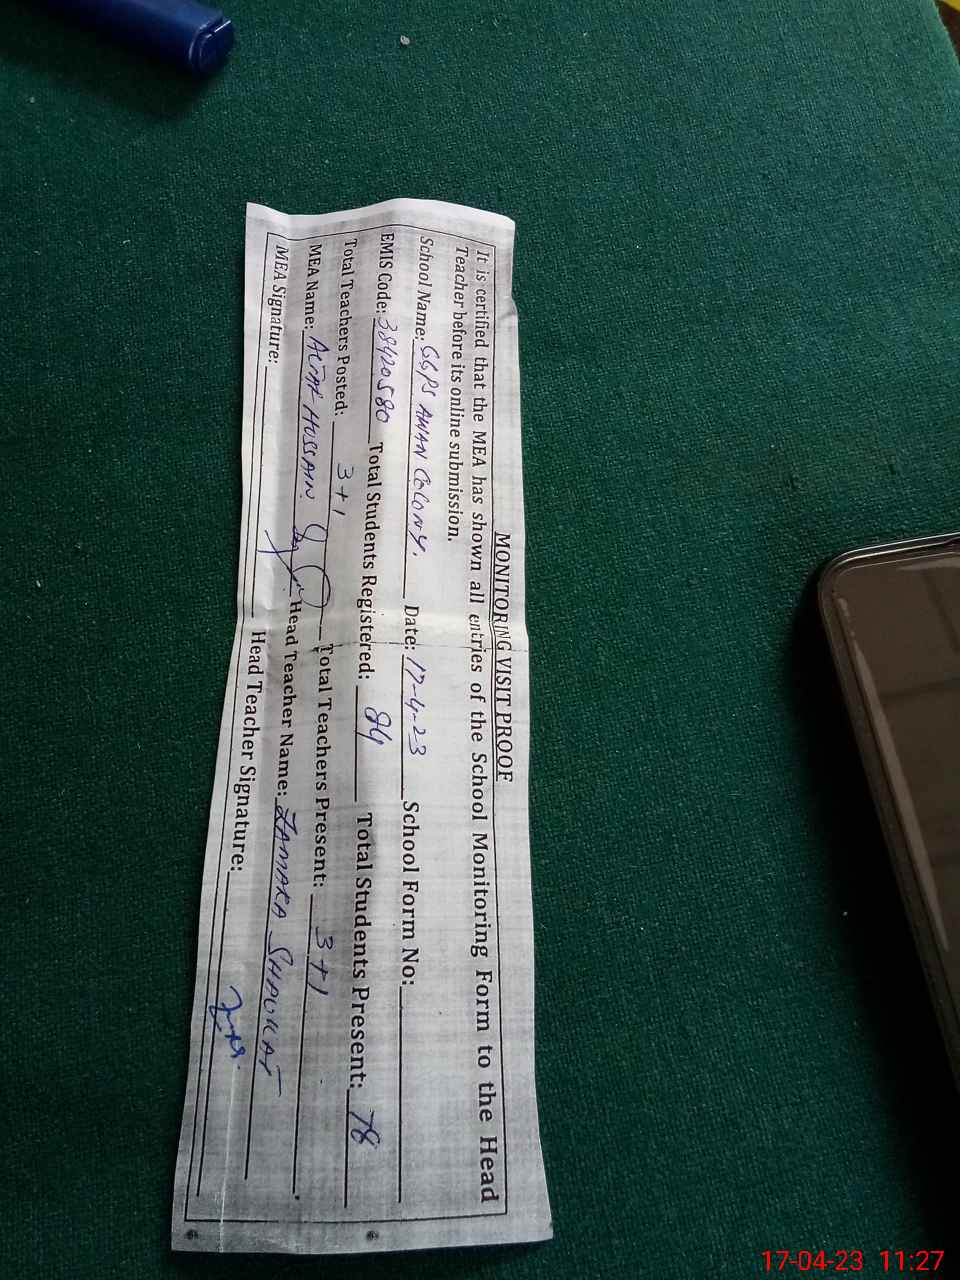 MONITORING VISIT PROOF
It is certified that the MEA has shown all entries of the School Monitoring Form to the Head
Teacher before its online submission.
School Name: GGPS AWAN COLONY. Date: 17-4-23 School Form No:
EMIS Code: 38420580 Total Students Registered: 84 Total Students Present: 78
Total Teachers Posted: 3+1 Total Teachers Present: 3+1
MEA Name: ALTAF HUSSAIN Head Teacher Name: ZAMARA SHAUKAT
MEA Signature: Head Teacher Signature:
17-04-23 11:27